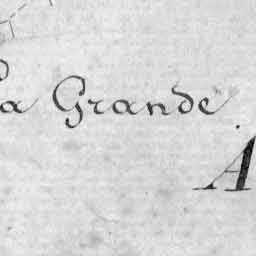 La Grande
A